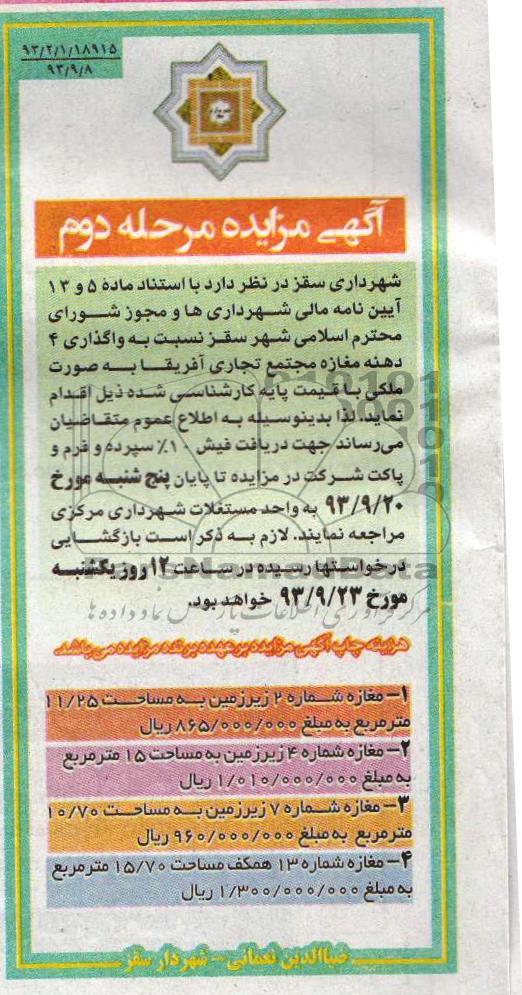 ۹۳/۲/۱/۱۸۹۱۵
۹۳/۹/۸
آگهی مزایده مرحله دوم
شهرداری سقز در نظر دارد با استناد ماده ۵ و ۱۳
آیین نامه مالی شهرداری ها و مجوز شورای
محترم اسلامی شهر سقز نسبت به واگذاری ۴
دهنه مغازه مجتمع تجاری آفریقا به صورت
ملکی با قیمت پایه کارشناسی شده ذیل اقدام
نماید. لذا بدینوسیله به اطلاع عموم متقاضیان
می‌رساند جهت دریافت فیش ۱۰٪ سپرده و فرم و
پاکت شرکت در مزایده تا پایان پنج شنبه مورخ
۹۳/۹/۲۰ به واحد مستغلات شهرداری مرکزی
مراجعه نمایند. لازم به ذکر است بازگشایی
درخواستها رسیده در ساعت ۱۲ روز یکشنبه
مورخ ۹۳/۹/۲۳ خواهد بود.
هزینه چاپ آگهی مزایده برعهده برنده مزایده می باشد.
۱- مغازه شماره ۲ زیرزمین به مساحت ۱۱/۲۵
مترمربع به مبلغ ۸۶۵/۰۰۰/۰۰۰ ریال
۲- مغازه شماره ۴ زیرزمین به مساحت ۱۵ مترمربع
به مبلغ ۱/۰۱۰/۰۰۰/۰۰۰ ریال
۳- مغازه شماره ۷ زیرزمین به مساحت ۱۰/۷۰
مترمربع به مبلغ ۹۶۰/۰۰۰/۰۰۰ ریال
۴- مغازه شماره ۱۳ همکف مساحت ۱۵/۷۰ مترمربع
به مبلغ ۱/۳۰۰/۰۰۰/۰۰۰ ریال
ضیاالدین نعمانی - شهردار سقز